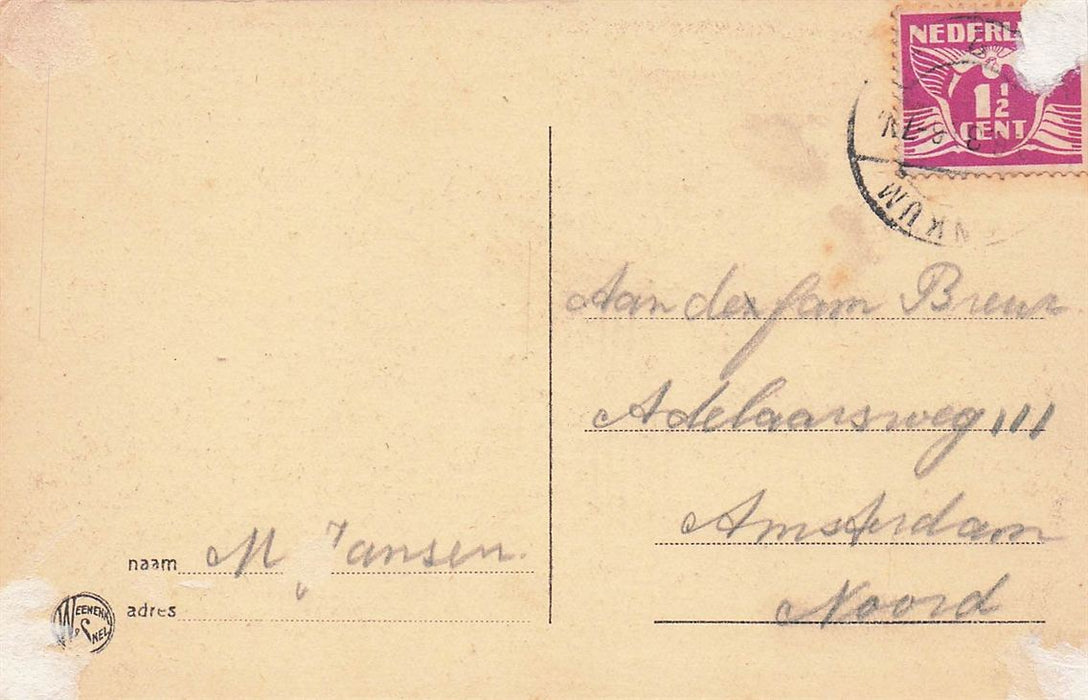 NEDERL
1½
CENT
NKUM
Aan de fam Breur
Adelaarsweg 111
Amsterdam
Noord
naam M Jansen.
adres
WEENENK & SNEL